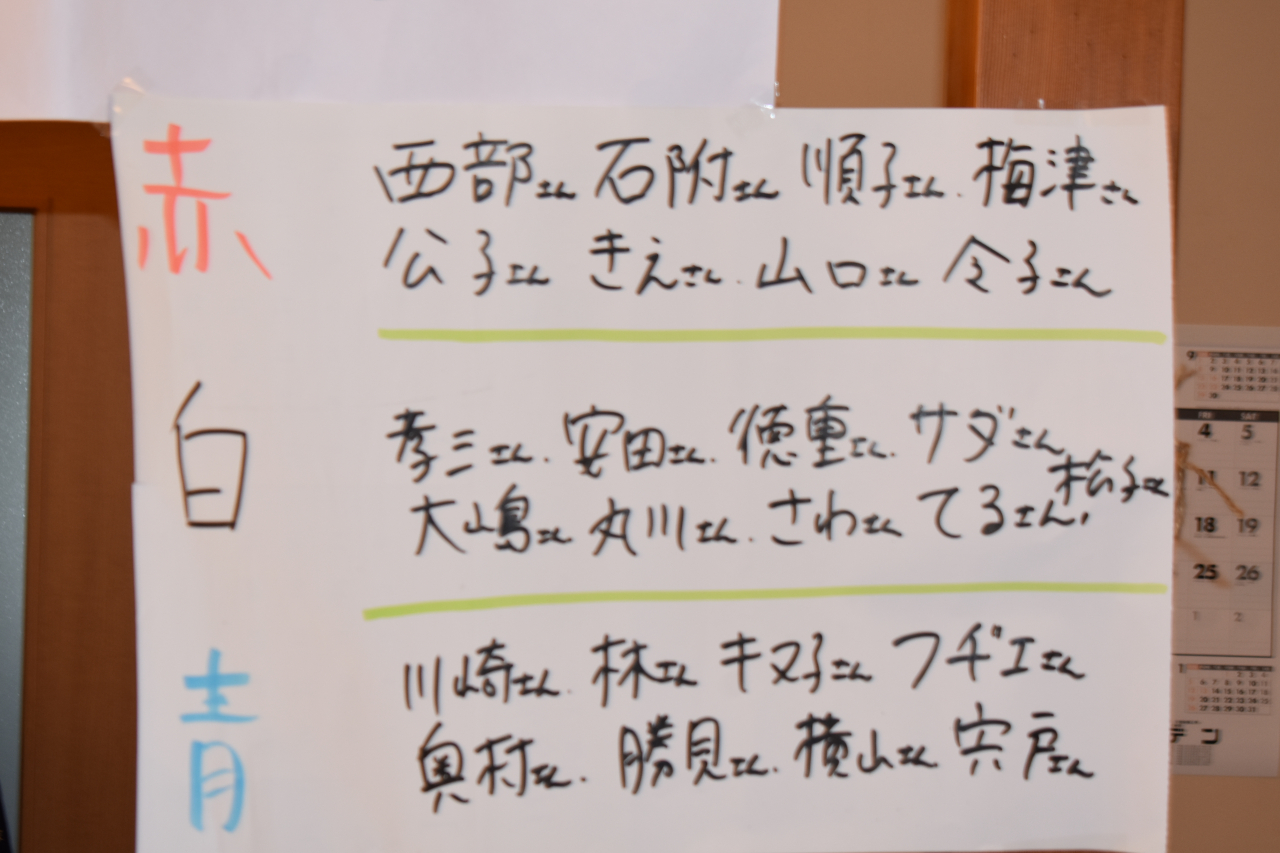 赤
西部さん 石附さん 順子さん、梅津さん
公子さん きえさん、山口さん 令子さん
白
孝三さん、安田さん、徳重さん、サダさん
松子さん
大嶋さん 丸川さん、さわさん てるさん,
青
川崎さん、林さん キヌ子さん フヂエさん
奥村さん、勝見さん、横山さん 宍戸さん
9
FRI SAT
4 5
11 12
18 19
25 26
1 2
デン